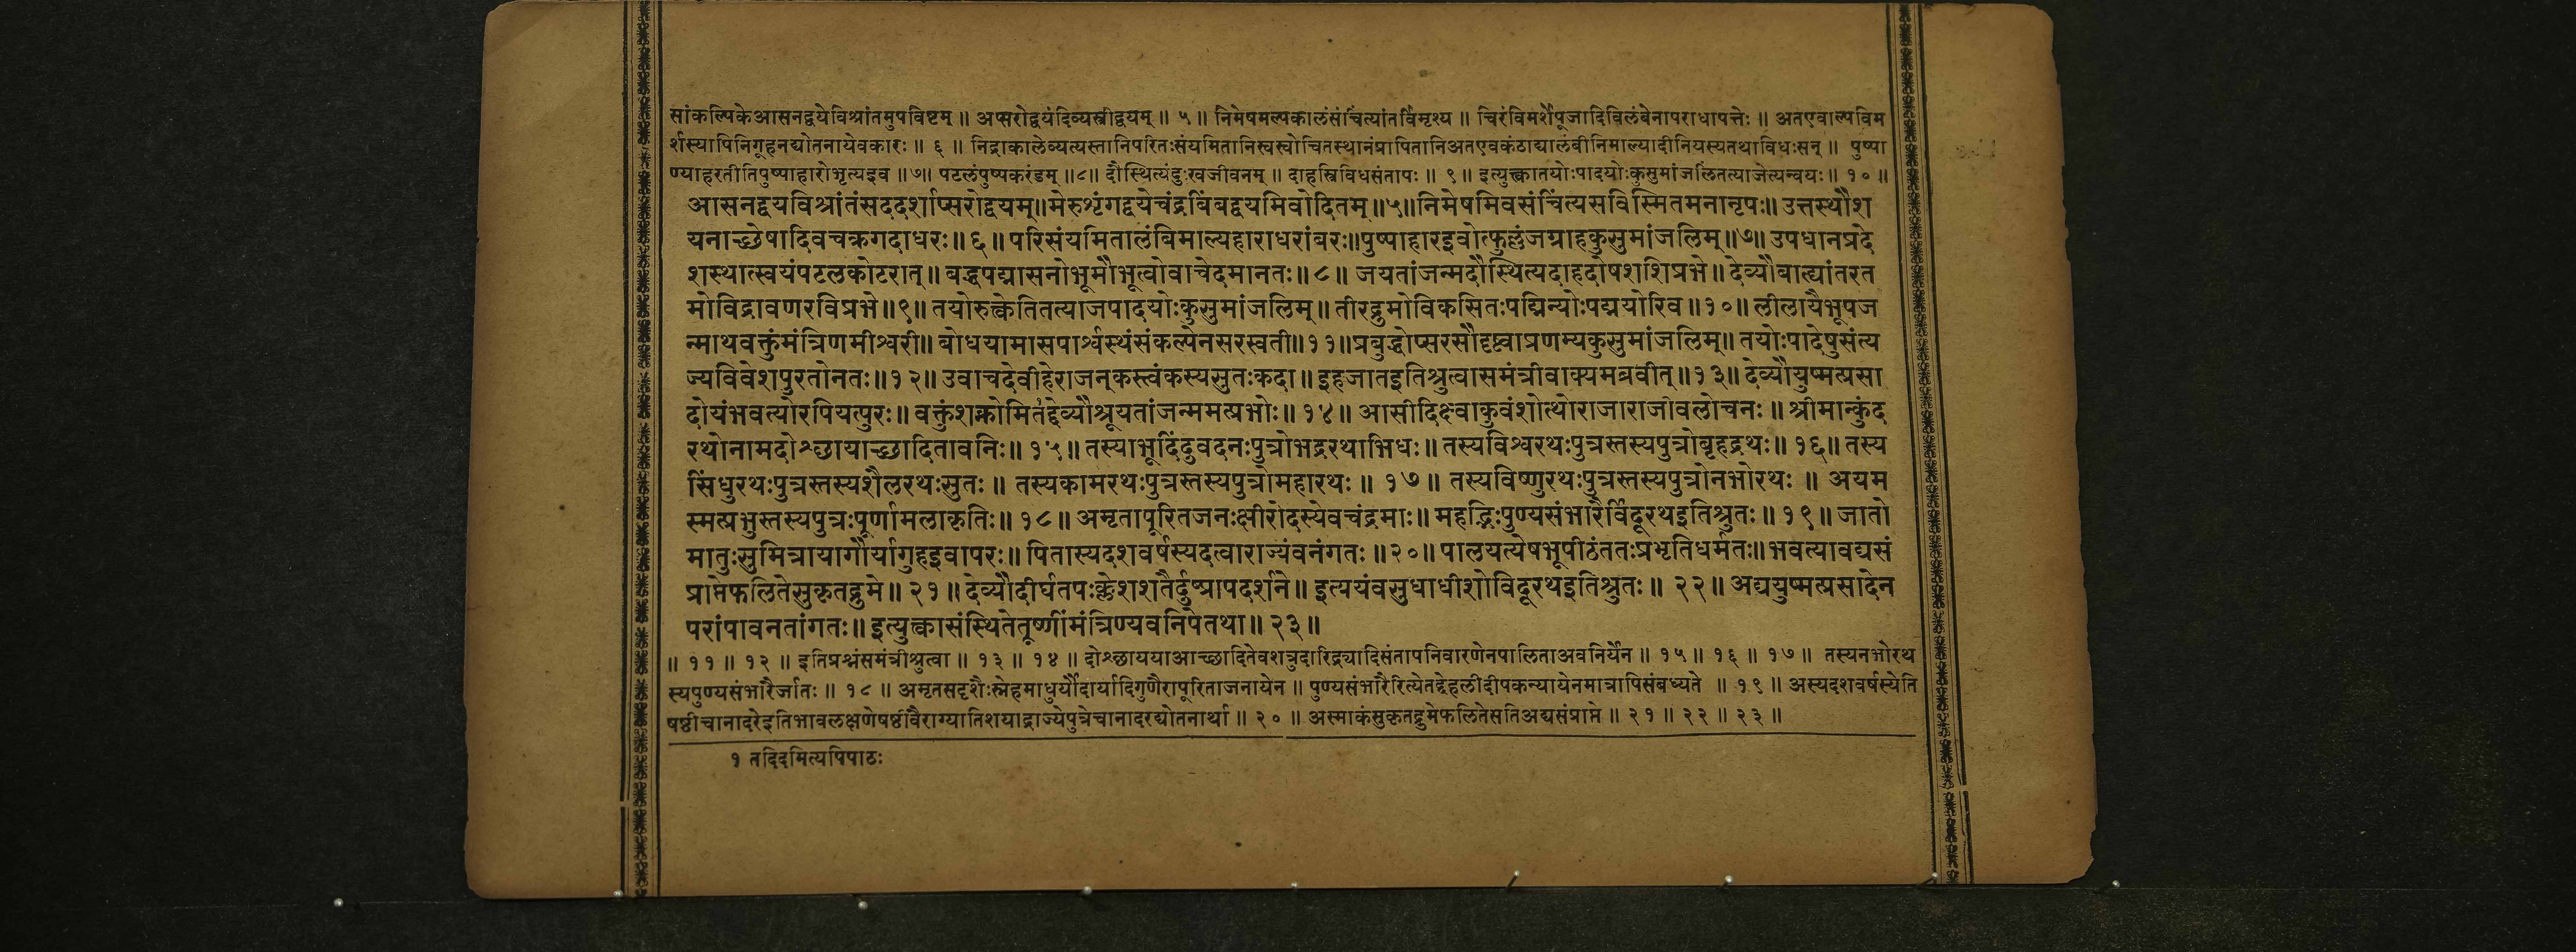 सांकल्पिकेआसनद्वयेविश्रांतमुपविष्टम् ॥ अप्सरोद्वयंदिव्यस्त्रीद्वयम् ॥ ५ ॥ निमेषमल्पकालंसंचिंत्यांतर्विमृश्य ॥ चिरंविमर्शेपूजादिविलंबेनापराधापत्तेः ॥ अतएवाल्पविम
र्शस्यापिनिगूहनद्योतनायेवकारः ॥ ६ ॥ निद्राकालेव्यत्यस्तानिपरितःसंयमितानिस्वस्वोचितस्थानंप्रापितानिअतएवकंठाद्यालंबीनिमाल्यादीनियस्यतथाविधःसन् ॥ पुष्पा
ण्याहरतीतिपुष्पाहारोभृत्यइव ॥७॥ पटलंपुष्पकरंडम् ॥८॥ दौस्थित्यंदुःखजीवनम् ॥ दाहस्त्रिविधसंतापः ॥ ९ ॥ इत्युक्त्वातयोःपादयोःकुसुमांजलिंतत्याजेत्यन्वयः ॥ १० ॥
आसनद्वयविश्रांतंसददर्शाप्सरोद्वयम्॥मेरुशृंगद्वयेचंद्रबिंबद्वयमिवोदितम्॥५॥निमेषमिवसंचिंत्यसविस्मितमनानृपः॥ उत्तस्थौश
यनाच्छेषादिवचक्रगदाधरः॥६॥ परिसंयमितालंबिमाल्यहाराधरांबरः॥पुष्पाहारइवोत्फुल्लंजग्राहकुसुमांजलिम्॥७॥ उपधानप्रदे
शस्थात्स्वयंपटलकोटरात्॥ बद्धपद्मासनोभूमौभूत्वोवाचेदमानतः॥८॥ जयतांजन्मदौस्थित्यदाहदोषशशिप्रभे॥ देव्यौबाह्यांतरत
मोविद्रावणरविप्रभे॥९॥ तयोरुक्त्वेतितत्याजपादयोःकुसुमांजलिम्॥ तीरद्रुमोविकसितःपद्मिन्योःपद्मयोरिव॥१०॥ लीलायैभूपज
न्माथवक्तुंमंत्रिणमीश्वरी॥ बोधयामासपार्श्वस्थंसंकल्पेनसरस्वती॥११॥प्रबुद्धोप्सरसौदृष्ट्वाप्रणम्यकुसुमांजलिम्॥ तयोःपादेषुसंत्य
ज्यविवेशपुरतोनतः॥१२॥ उवाचदेवीहेराजन्कस्त्वंकस्यसुतःकदा॥ इहजातइतिश्रुत्वासमंत्रीवाक्यमब्रवीत्॥१३॥ देव्यौयुष्मत्प्रसा
दोयंभवत्योरपियत्पुरः॥ वक्तुंशक्नोमितद्देव्यौश्रूयतांजन्ममत्प्रभोः॥ १४॥ आसीदिक्ष्वाकुवंशोत्थोराजाराजीवलोचनः ॥ श्रीमान्कुंद
रथोनामदोश्छायाच्छादितावनिः॥ १५॥ तस्याभूदिंदुवदनःपुत्रोभद्ररथाभिधः॥ तस्यविश्वरथःपुत्रस्तस्यपुत्रोबृहद्रथः॥ १६॥ तस्य
सिंधुरथःपुत्रस्तस्यशैलरथःसुतः ॥ तस्यकामरथःपुत्रस्तस्यपुत्रोमहारथः ॥ १७ ॥ तस्यविष्णुरथःपुत्रस्तस्यपुत्रोनभोरथः ॥ अयम
स्मत्प्रभुस्तस्यपुत्रःपूर्णामलाकृतिः॥ १८॥ अमृतापूरितजनःक्षीरोदस्येवचंद्रमाः॥ महद्भिःपुण्यसंभारैर्विदूरथइतिश्रुतः॥ १९॥ जातो
मातुःसुमित्रायागौर्यागुहइवापरः॥ पितास्यदशवर्षस्यदत्वाराज्यंवनंगतः ॥२०॥ पालयत्येषभूपीठंततःप्रभृतिधर्मतः॥भवत्यावद्यसं
प्राप्तेफलितेसुकृतद्रुमे॥ २१॥ देव्यौदीर्घतपःक्लेशशतैर्दुष्प्रापदर्शने॥ इत्ययंवसुधाधीशोविदूरथइतिश्रुतः॥ २२॥ अद्ययुष्मत्प्रसादेन
परांपावनतांगतः॥ इत्युक्त्वासंस्थितेतूष्णींमंत्रिण्यवनिपेतथा॥ २३॥
॥ ११ ॥ १२ ॥ इतिप्रश्नंसमंत्रीश्रुत्वा ॥ १३ ॥ १४ ॥ दोश्छाययाआच्छादितेवशत्रुदारिद्र्यादिसंतापनिवारणेनपालिताअवनिर्येन ॥ १५ ॥ १६ ॥ १७ ॥ तस्यनभोरथ
स्यपुण्यसंभारैर्जातः ॥ १८ ॥ अमृतसदृशैःस्नेहमाधुर्यौदार्यादिगुणैरापूरिताजनायेन ॥ पुण्यसंभारैरित्येतद्देहलीदीपकन्यायेनमात्रापिसंबध्यते ॥ १९ ॥ अस्यदशवर्षस्येति
षष्ठीचानादरेइतिभावलक्षणेषष्ठीवैराग्यातिशयाद्राज्येपुत्रेचानादरद्योतनार्था ॥ २० ॥ अस्माकंसुकृतद्रुमेफलितेसतिअद्यसंप्राप्ते ॥ २१ ॥ २२ ॥ २३ ॥
१ तदिदमित्यपिपाठः